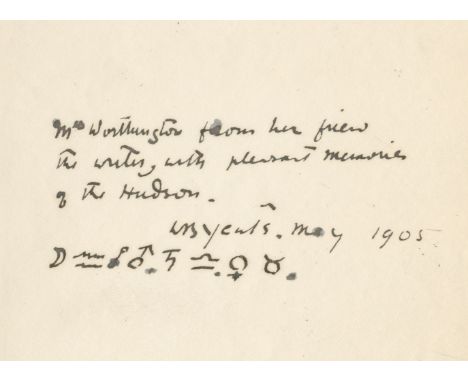 Mrs Worthington from her friend
the writer, with pleasant memories
of the Hudson.
WB Yeats. May 1905
☽ ♒ ☍ ♂ ♄ ♎ ♀ ♉.